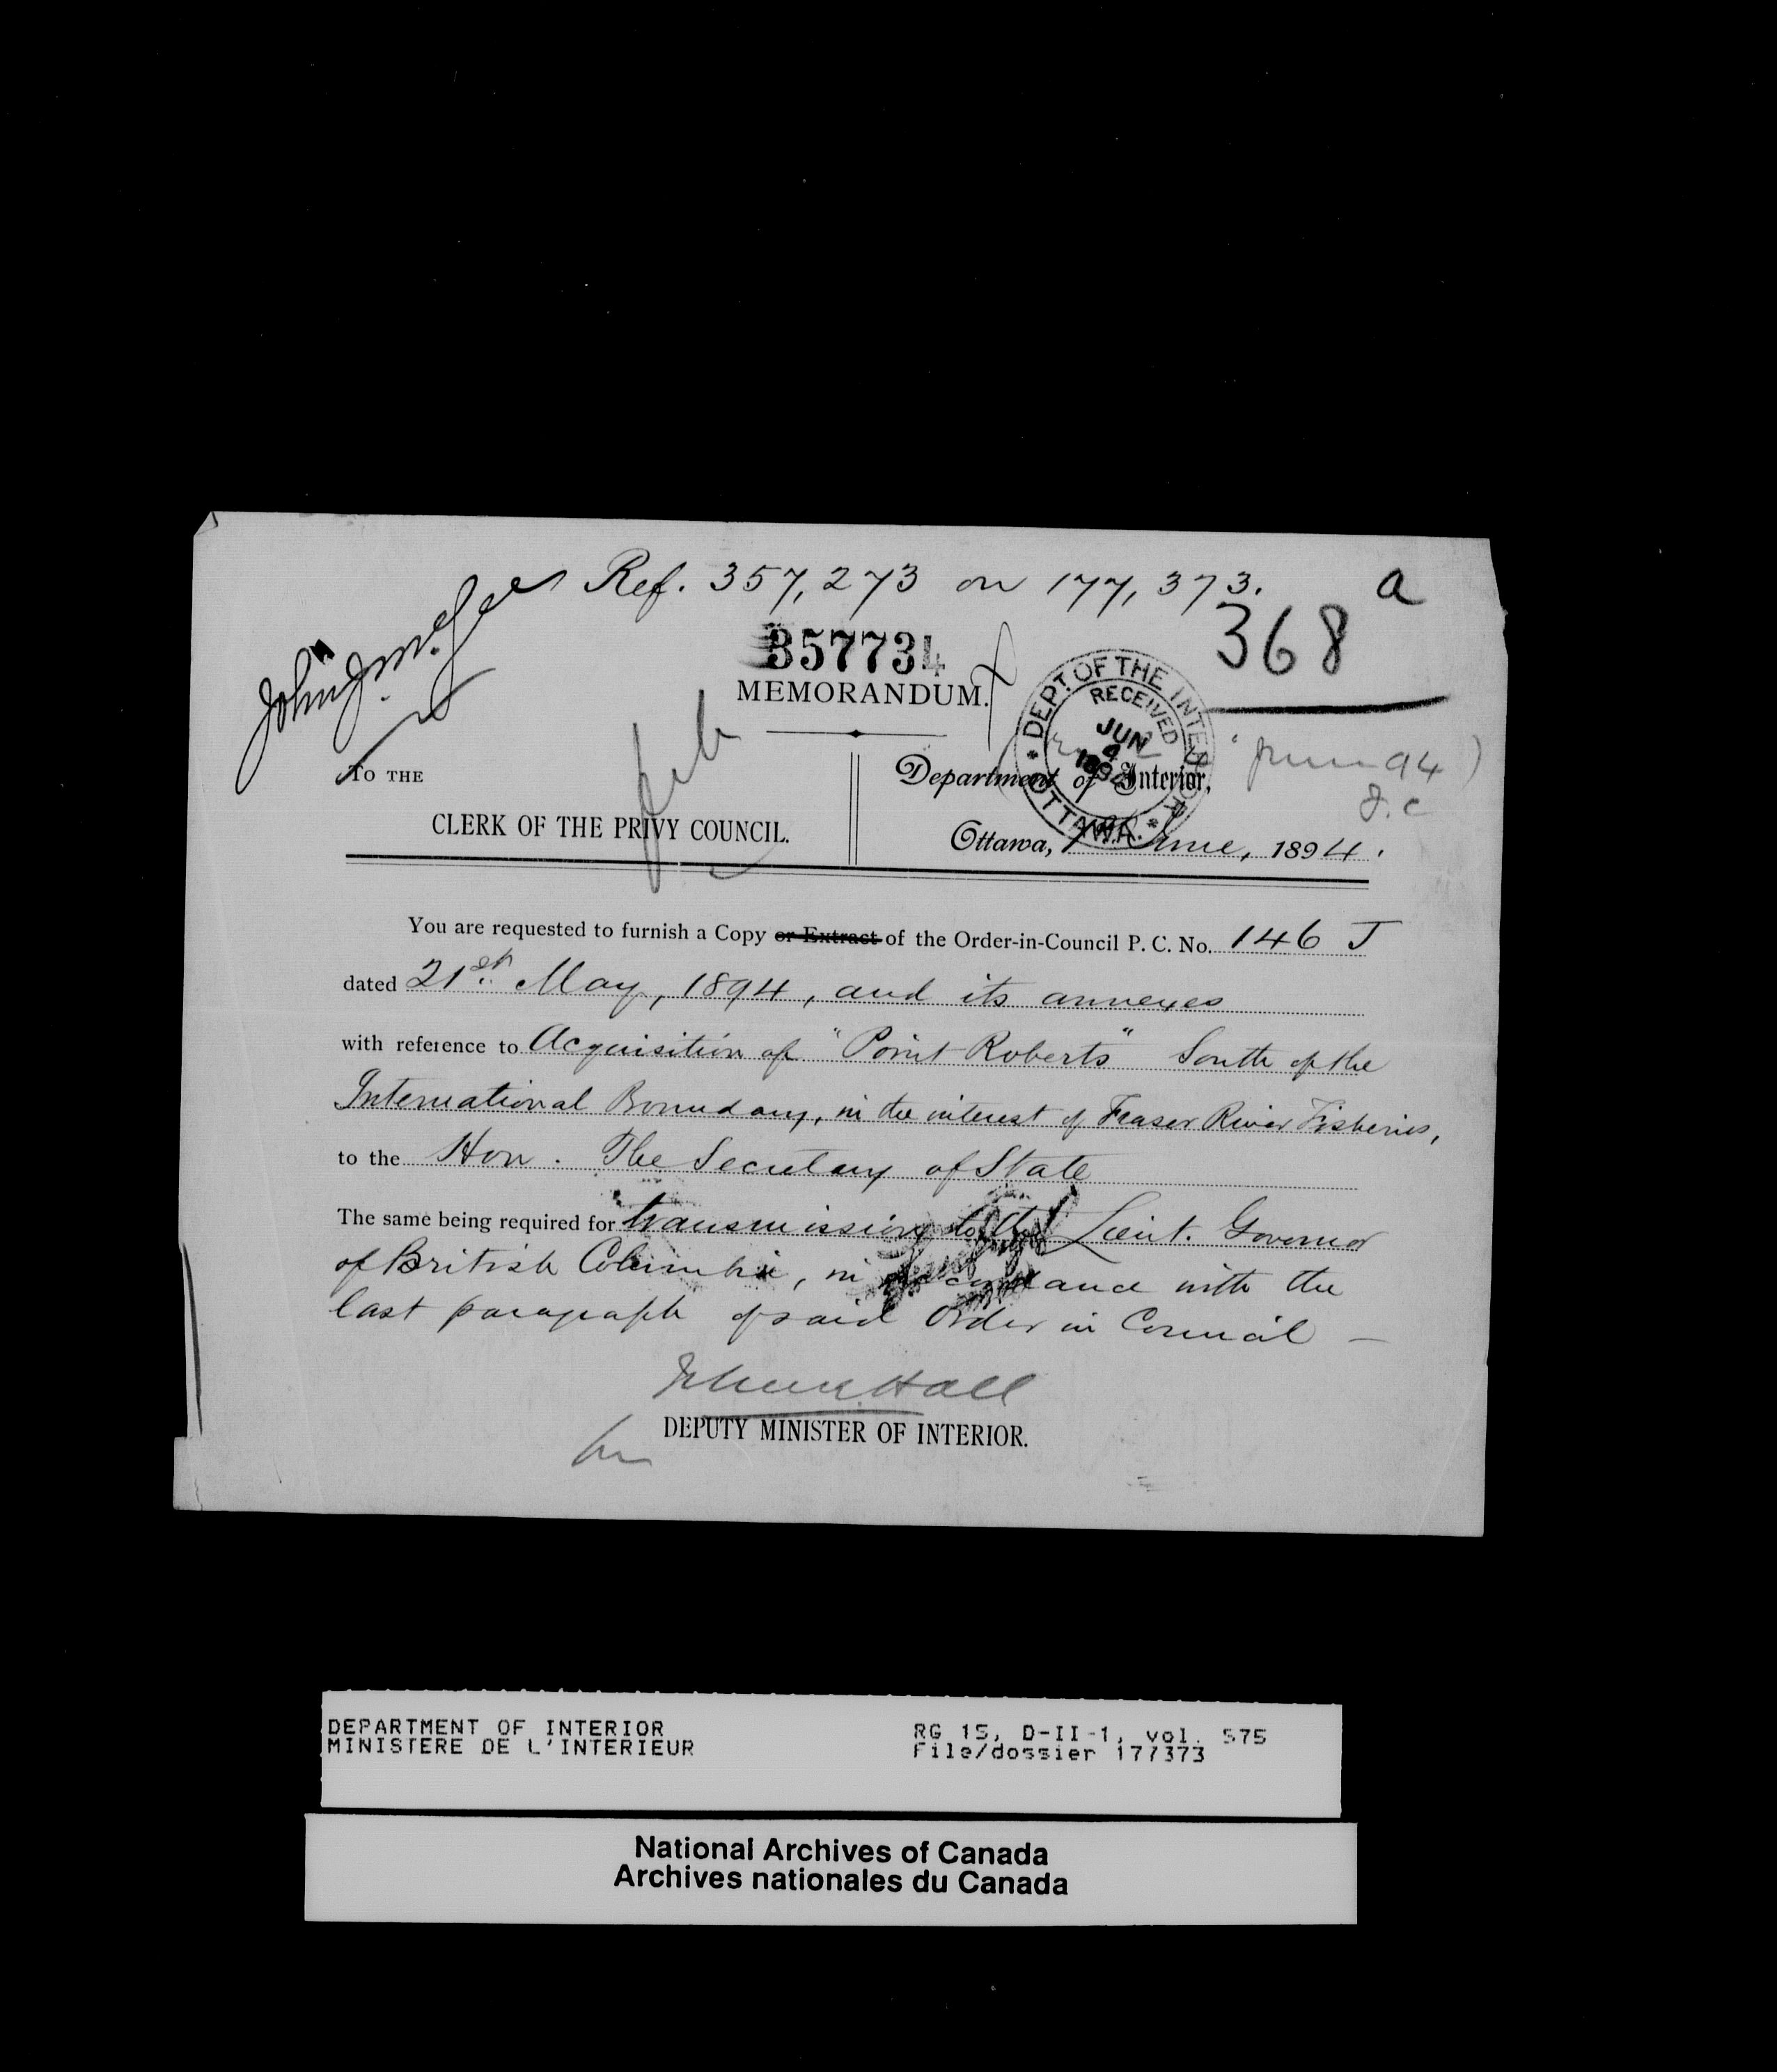 Ref. 357,273 on 177,373.
a
368
357734
MEMORANDUM.
DEPT. OF THE INTERIOR
RECEIVED
JUN 4 1894
* OTTAWA. *
TO THE
CLERK OF THE PRIVY COUNCIL.
Department of Interior,
94)
J.C
Ottawa, 1st June, 1894.
You are requested to furnish a Copy or Extract of the Order-in-Council P. C. No. 146 J
dated 21st May, 1894, and its annexes
with reference to Acquisition of "Point Roberts" South of the
International Boundary, in the interest of Fraser River Fisheries,
to the Hon. The Secretary of State
The same being required for transmission to the Lieut. Governor
of British Columbia, in accordance with the
last paragraph of said Order in Council —
Hall
DEPUTY MINISTER OF INTERIOR.
DEPARTMENT OF INTERIOR
MINISTERE DE L'INTERIEUR
RG 15, D-II-1, vol. 575
File/dossier 177373
National Archives of Canada
Archives nationales du Canada